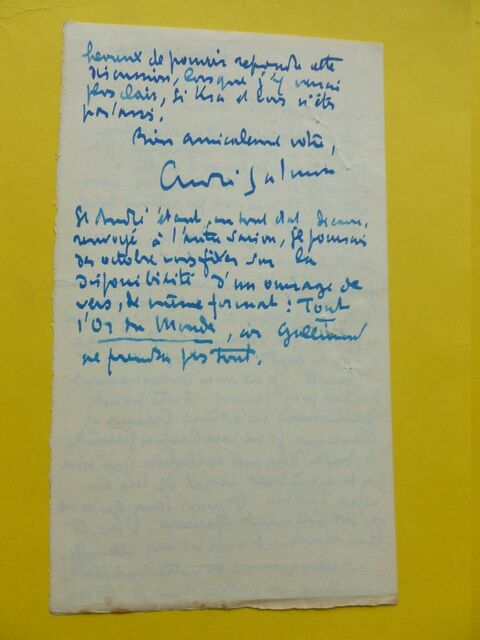 heureux de pouvoir reprendre cette
discussion, lorsque j'y verrai
plus clair, si
pas aussi.
Bien amicalement vôtre,
André Salmon
St André étant, en tout état de cause,
renvoyé à l'autre saison, je pourrai
dès octobre vous fixer sur la
disponibilité d'un ouvrage de
vers, de même format : Tout
l'Or du Monde, car Gallimard
ne prendra pas tout.